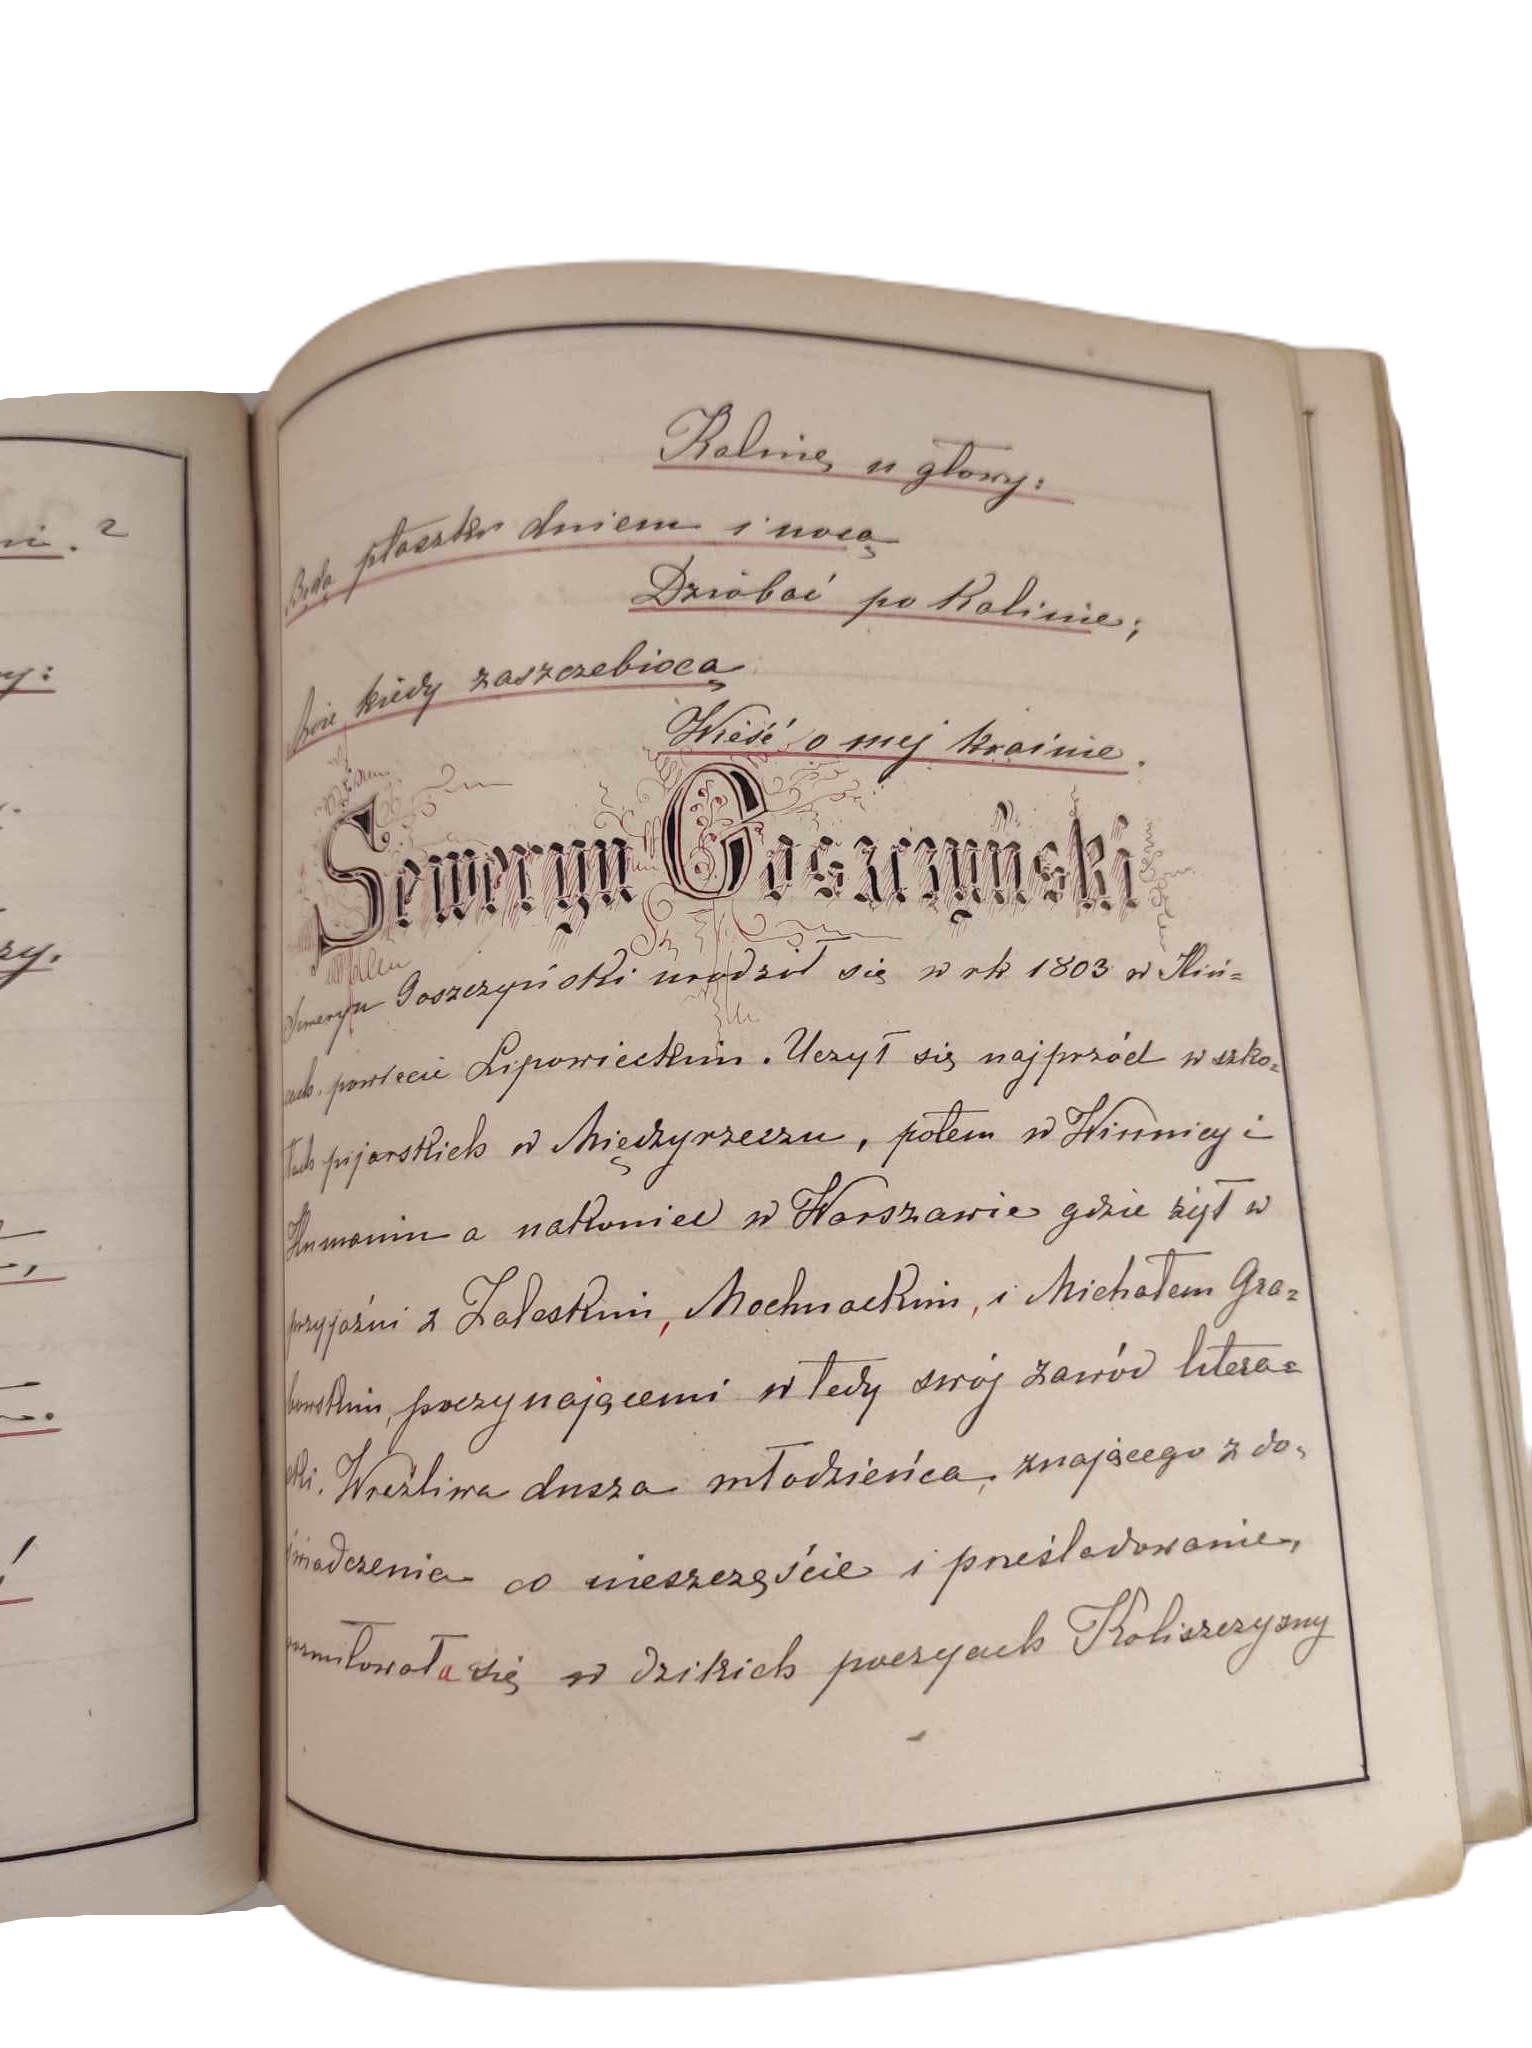 Kalinę u głowy:
Będą ptaszki dniem i nocą
Dzióbać po Kalinie;
kiedy zaszczebiocą
Wieść o mej krainie.
Seweryn Goszczyński
Seweryn Goszczyński urodził się w rk 1803 w Iliń=
cach. powiecie Lipowieckim. Uczył się najprzód w szko=
łach pijarskich w Międzyrzeczu, potem w Winnicy i
Humaniu a nakoniec w Warszawie gdzie żył w
przyjaźni z Zaleskim, Mochnackim, i Michałem Gra=
bowskim, poczynającemi w tedy swój zawód litera=
cki. Wreźliwa dusza młodzieńca, znającego z do=
świadczenia co nieszczęście i prześladowanie,
rozmiłowała się w dzikich poezyach Koliszczyzny